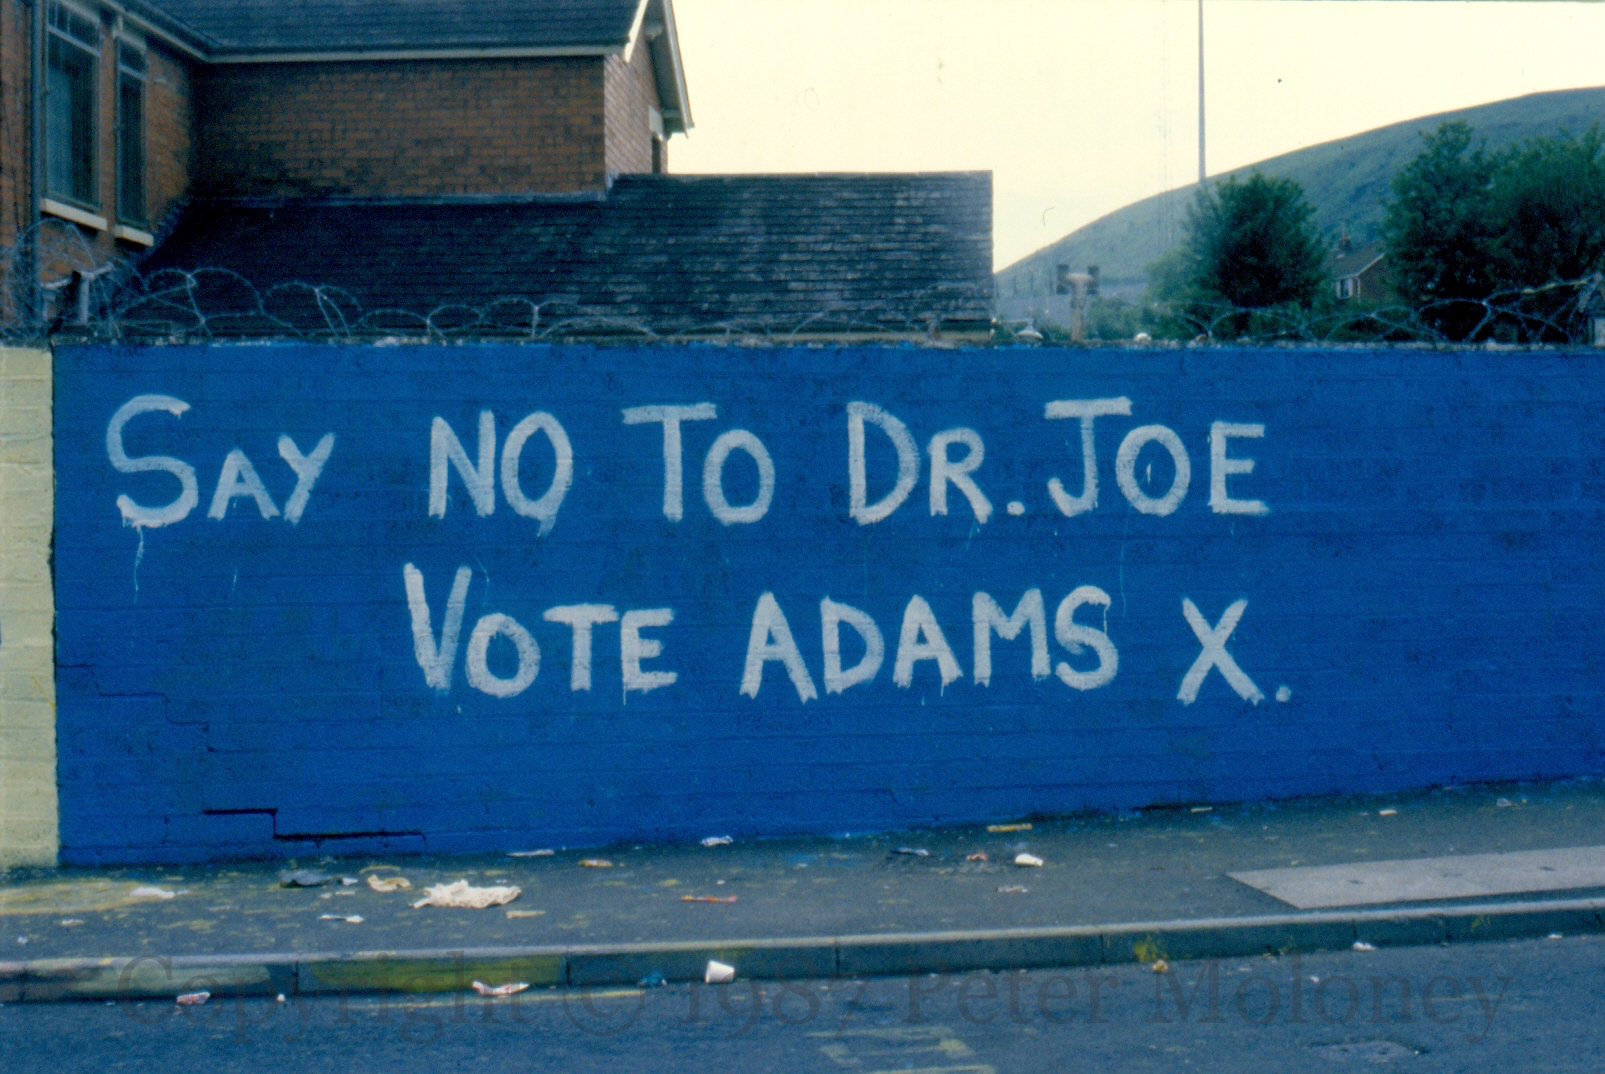 SAY NO TO DR. JOE
VOTE ADAMS X.
Copyright © 1987 Peter Moloney